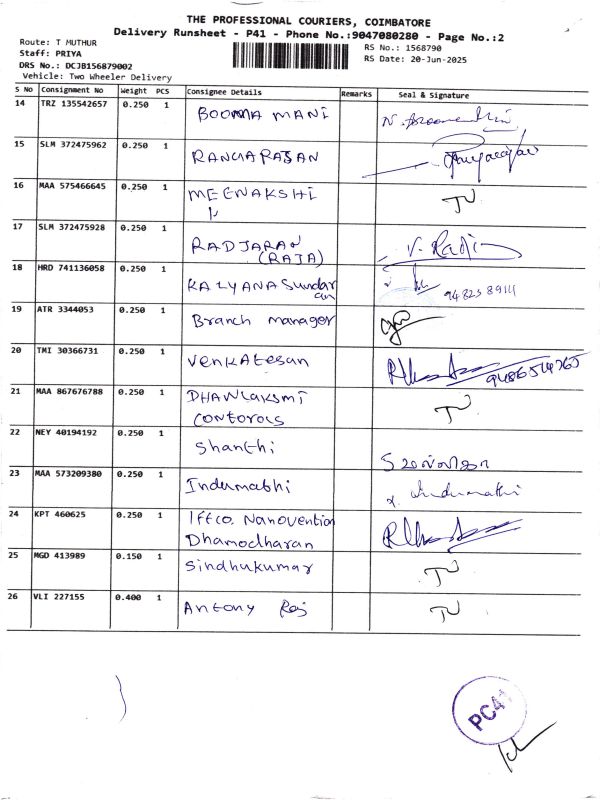 THE PROFESSIONAL COURIERS, COIMBATORE
Delivery Runsheet - P41 - Phone No.:9047080280 - Page No.:2
Route: T MUTHUR
RS No.: 1568790
Staff: PRIYA
RS Date: 20-Jun-2025
DRS No.: DCJB156879002
Vehicle: Two Wheeler Delivery
S No Consignment No Weight PCS Consignee Details Remarks Seal & Signature
14 TRZ 135542657 0.250 1 BOOMA MANI
15 SLM 372475962 0.250 1 RANGARAJAN
16 MAA 575466645 0.250 1 MEENAKSHI
17 SLM 372475928 0.250 1 RADJARAN V. Raji
(RAJA)
18 HRD 741136058 0.250 1 KALYANASundar
an
19 ATR 3344053 0.250 1 Branch manager
20 TMI 30366731 0.250 1 Venkatesan
21 MAA 867676788 0.250 1 DHANLAKSMI
CONTOROLS
22 NEY 40194192 0.250 1 Shanthi
23 MAA 573209380 0.250 1 Indumathi Indumathi
24 KPT 460625 0.250 1 IFFCO. Nanovention
Dhamodharan
25 MGD 413989 0.150 1 Sindhukumar
26 VLI 227155 0.400 1 Antony Raj
PC41